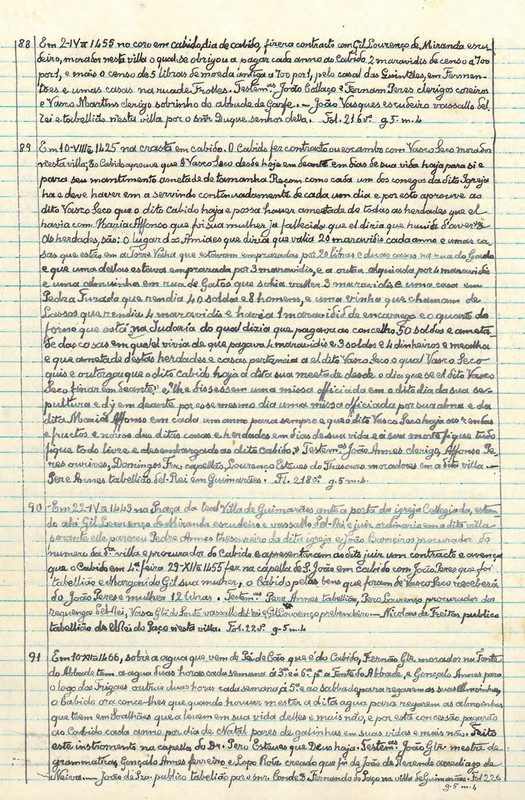 88 Em 2-IV-1455 no coro em cabido, dia de cabido, fizera contracto com Gil Lourenço de Miranda escu-
deiro, morador nesta villa o qual se obrigou a pagar cada anno ao Cabido 2 maravidis de censo a 700
por 1, e mais o censo de 5 libras de moeda antiga a 700 por 1, pelo casal das Quintães, em Fermen-
tões e umas casas na rua de Frolles. Testemas João Collaço e Fernam Peres clerigos coreiros
e Vasco Martins clerigo sobrinho do abbade de Garfe. — João Vasques escudeiro vassallo del-
Rei e tabellião nesta villa por o sñr Duque senhor della. Fol. 216 vo. g-5 m-4
89 Em 10-VIII-1425 na crasta em cabido. O Cabido fez contracto ou escambo com Vasco Seco morador
nesta villa; o Cabido aprouve que o Vasco Seco desde hoje em deante em dias de sua vida haja para si e
para seu mantimento ametade de tamanha Reçom como cada um dos conegos da dita Igreja
ha e deve haver em a servindo continuadamente de cada um dia e por esto aprouve ao
dito Vasco Seco que o dito Cabido haja e possa haver ametade de todas as herdades que el
havia com Maria Affonso que foi sua mulher já fallecida
As herdades, são: o lugar dos Amiaes que dizia que valia 20 maravidis cada anno e umas ca-
sas que estão em a Torre Velha que estavam emprazadas por 20 libras e duas casas na rua do Gado
e que uma dellas estava emprazada por 3 maravidis, e a outra alquiada por 4 maravidis
e uma almuinha em rua de Gatos que sohia valler 3 maravidis e uma casa em
Pedra Furada que rendia 40 soldos e 8 homens, e uma vinha que chamam de
Lassos que rendia 4 maravidis e havia 1 maravidil de encarrego e o quarto do
forno que está na Judaria do qual dizia que pagava ao concelho 50 soldos e ameta-
de das casas em que el vivia de que pagava 4 maravidis e 3 soldos e 4 dinheiros e mealha
e que ametade destas herdades e casas pertencia a el dito Vasco Seco o qual Vasco Seco
quis e outorgou que o dito Cabido haja a dita sua metade desde o dia que se el dito Vasco
Seco finar em deante, e lhe dissessem uma missa officiada em o dito dia da sua se-
pultura e di em deante por esse mesmo dia uma missa officiada por sua alma e da
dita Maria Affonso em cada um anno para sempre e que o dito Vasco Seco haja as rendas
e fructos e novos das ditas casas e herdades em dias de sua vida e á sua morte fique tudo
fique todo livre e desembargado ao dito Cabido. Testemas João Annes clerigo, Affonso Pe-
res ourives, Domingos Fiz. capellão, Lourenço Esteves do Tresouro moradores em a dita villa —
Pere Annes tabellião del-Rei em Guimarães. Fl. 218 vo. g-5 m-4
90 — Em 22-IV-1443 na Praça da leal Villa de Guimarães ante a porta da igreja Collegiada, estan-
do ahi Gil Lourenço de Miranda escudeiro e vassallo del-Rei e juiz ordinario em a dita villa
perante elle pareceu Pedre Annes thesoureiro da dita igreja e João Barreiro procurador do
numero da dta villa e procurador do Cabido e apresentaram ao dito juiz um contracto e avença
que o Cabido em 4a feira 29-XII-1455 fez na capella de S. João em Cabido com João Peres que foi
tabellião e Margarida Gil sua mulher, o Cabido pelos bens que foram de Vasco Seco receberá
de João Peres e mulher 12 libras. Testemas Pere Annes tabellião, Pero Lourenço procurador dos
reguengos del-Rei, Vasco Glz do Canto vassallo del Rei e Gil Lourenço prebendeiro — Nicolau de Freitas publico
tabellião da del-Rei do Paço nesta villa. Fol. 220. g-5 m-4
91 Em 10-XII-1466, sobre a agua que vem de Pé de Cão que é do Cabido, Fernão Glz morador na Fonte
do Abbade tem a agua duas horas cada semana á 3a e á 6a pa a Fonte do Abbade, e Gonçalo Annes para
o logo das Trigaes outras duas horas cada semana, á 5a e ao sabbado para regarem as suas almoinhas,
o Cabido ora concede-lhes que quando houver mester a dita agua para regarem as almoinhas
que teem em Soalhães que a levem em sua vida delles e mais não, e por esta concessão pagarão
ao Cabido cada anno por dia de Natal pares de galinhas em suas vidas e mais não. Feito
este instromento na capella do Dr. Pero Esteves que Deus haja. Testemas João Glz mestre de
grammatica, Gonçalo Annes ferreiro, e Lopo Rois creado que foi de João de Rezende arcediago de
Neiva. — João de Sza. publico tabellião por o snr. Conde D. Fernando do Paço na villa de Guimarães. Fol 226
g-5 m-4